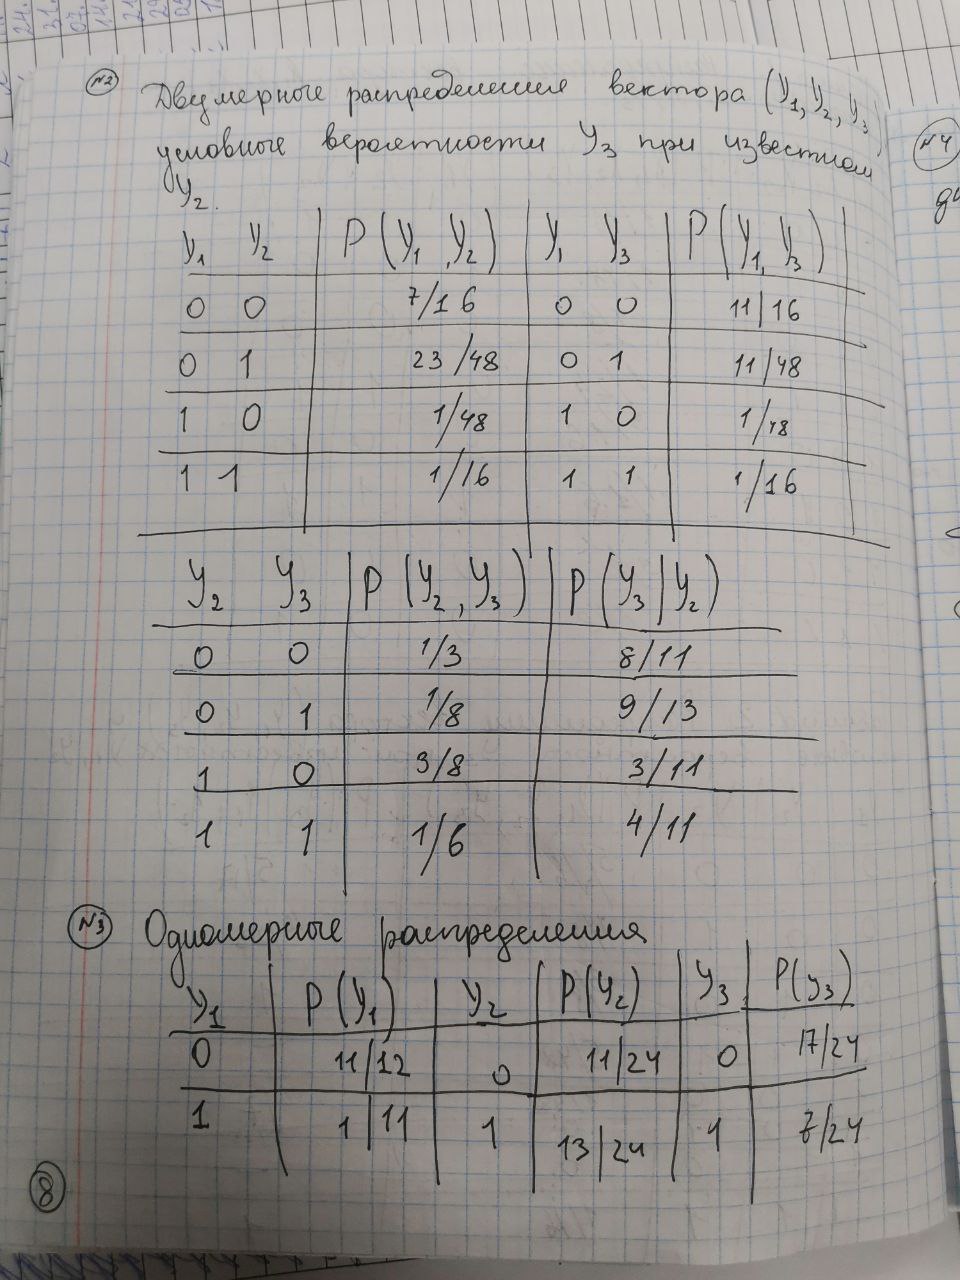 №2 Двумерные распределения вектора (Y₁, Y₂, Y₃
условные вероятности Y₃ при известном
Y₂.
Y₁ Y₂ P(Y₁, Y₂) Y₁ Y₃ P(Y₁, Y₃)
0 0 7/16 0 0 11/16
0 1 23/48 0 1 11/48
1 0 1/48 1 0 1/48
1 1 1/16 1 1 1/16
Y₂ Y₃ P(Y₂, Y₃) P(Y₃|Y₂)
0 0 1/3 8/11
0 1 1/8 9/13
1 0 3/8 3/11
1 1 1/6 4/11
№3 Одномерные распределения
Y₁ P(Y₁) Y₂ P(Y₂) Y₃ P(y₃)
0 11/12 0 11/24 0 17/24
1 1/11 1 13/24 1 7/24
8
№4